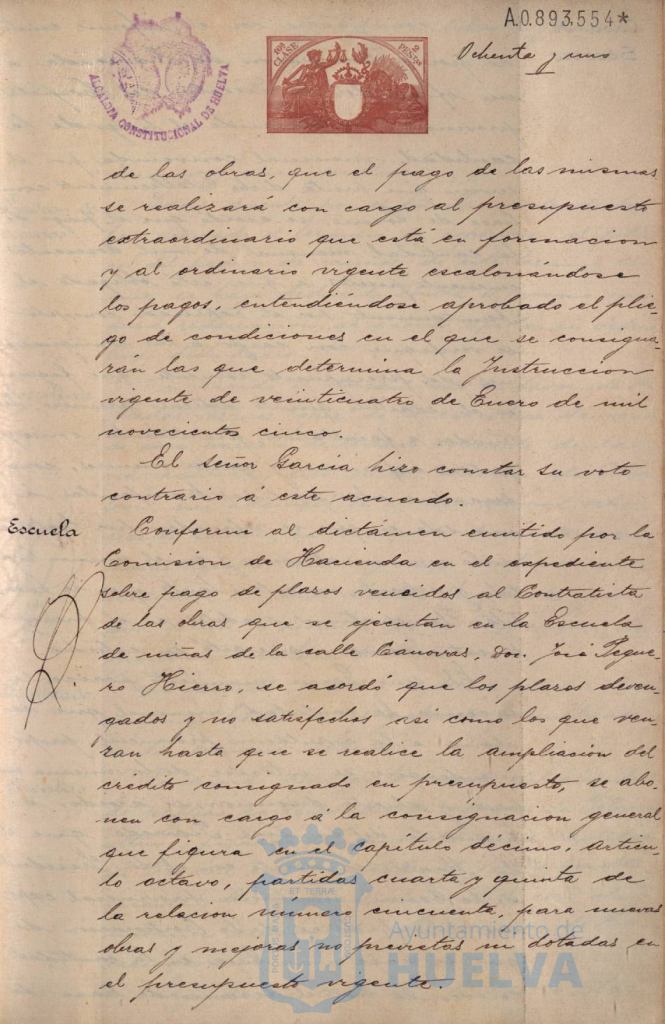 A.0.893,554*
Ochenta y uno
10ª CLASE
2 PESTAS
ALCALDIA CONSTITUCIONAL DE HUELVA
de las obras, que el pago de las mismas
se realizará con cargo al presupuesto
extraordinario que está en formacion
y al ordinario vigente escalonándose
los pagos, entendiéndose aprobado el plie-
go de condiciones en el que se consigna-
rán las que determina la Instruccion
vigente de veinticuatro de Enero de mil
novecientos cinco.
El señor Garcia hizo constar su voto
contrario á este acuerdo.
Escuela
Conforme al dictámen emitido por la
Comision de Hacienda en el expediente
sobre pago de plazos vencidos al Contratista
de las obras que se ejecutan en la Escuela
de niñas de la calle Cánovas, Don José Pegue-
ro Hierro, se acordó que los plazos deven-
gados y no satisfechos asi como los que ven-
zan hasta que se realice la ampliacion del
crédito consignado en presupuesto, se abo-
nen con cargo á la consignacion general
que figura en el capítulo décimo, artícu-
lo octavo, partidas cuarta y quinta de
la relacion número cincuenta, para nuevas
obras y mejoras no previstas ni dotadas en
el presupuesto vigente.
Ayuntamiento de
HUELVA